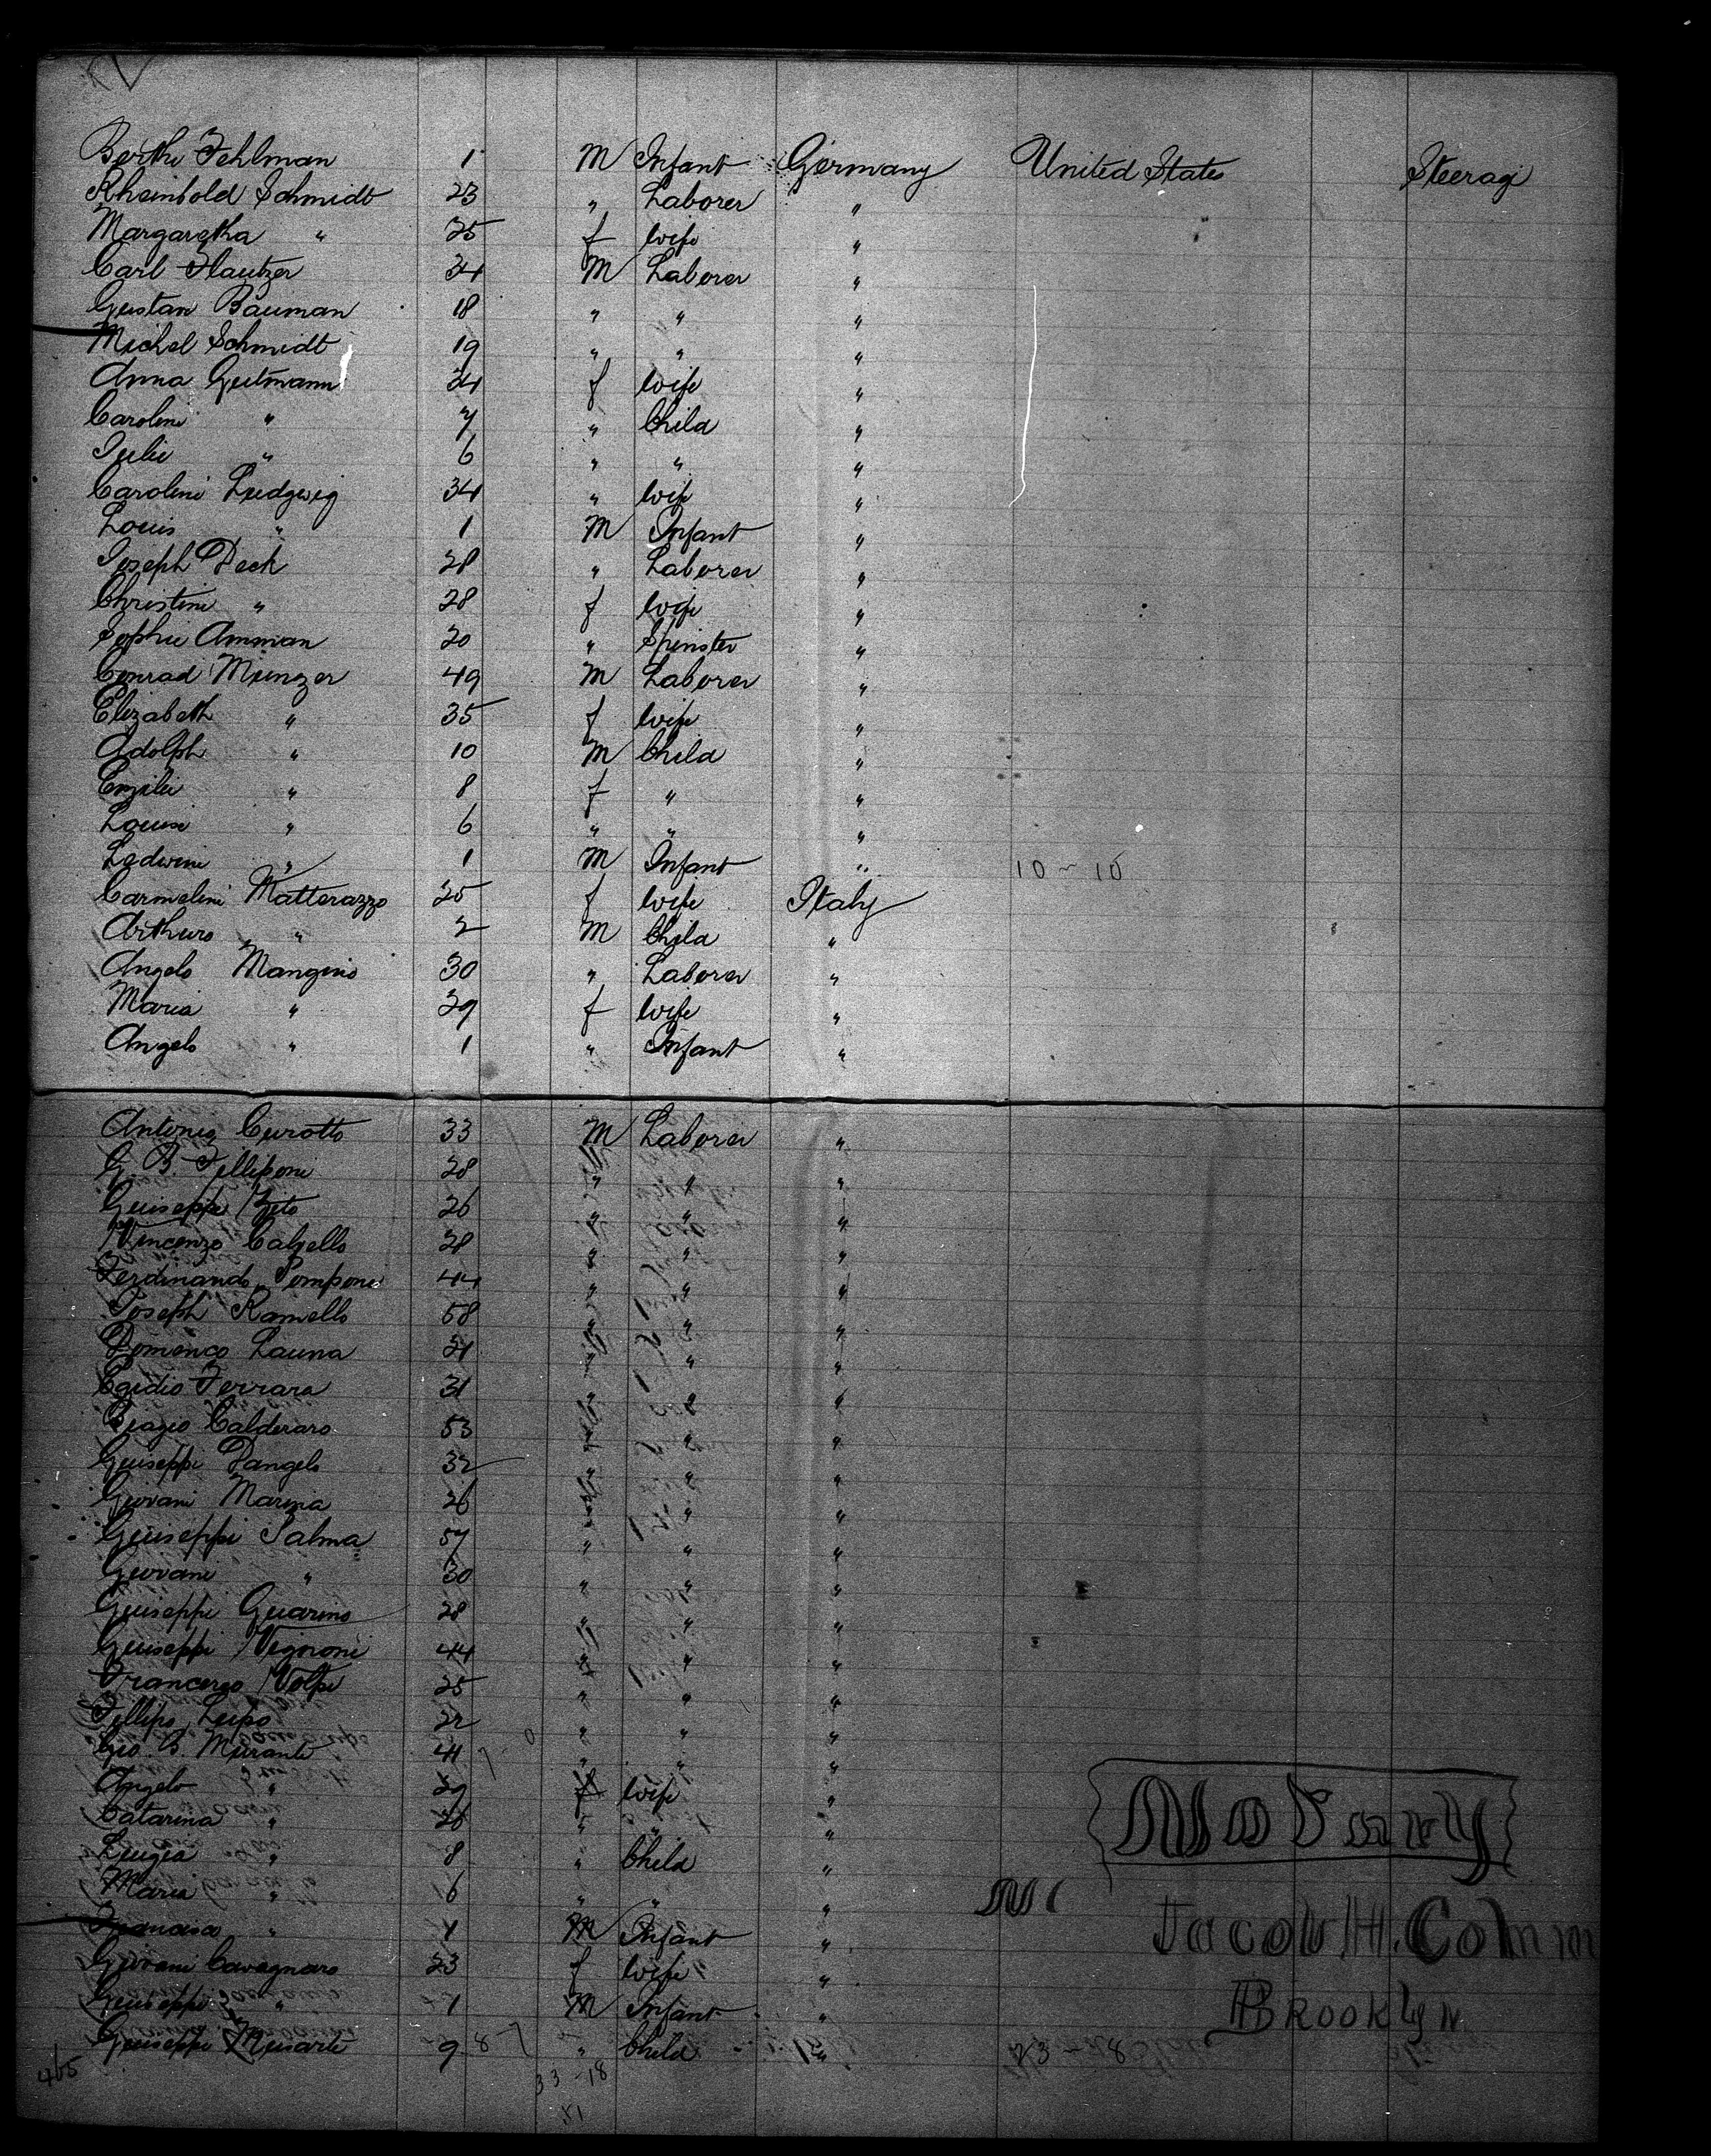 Berthe Fehlman 1 M Infant Germany United States Steerag
Rheinbold Schmidt 23 " Laborer "
Margaretha " 25 f wife "
Carl Hautzer 34 M Laborer "
Gustav Bauman 18 " " "
Michel Schmidt 19 " " "
Anna Gutmann 34 f wife "
Carolini " 7 " Child "
Julie " 6 " " "
Carolini Ludgwig 34 " wife "
Louis " 1 M Infant "
Joseph Deck 28 " Laborer "
Christine " 28 f wife "
Sophie Amman 20 " Spinster "
Conrad Munzer 49 M Laborer "
Elizabeth " 35 f wife "
Adolph " 10 M Child "
Emilie " 8 f " "
Louise " 6 " " "
Ledwine " 1 M Infant "
10 - 15
Carmelini Matterazzo 25 f wife Italy
Arthuro " 2 M Child "
Angelo Mangino 30 " Laborer "
Maria " 29 f wife "
Angelo " 1 " Infant "
Antonio Curotto 33 M Laborer "
G. B. Felliponi 28 " " "
Guiseppi Zito 26 " " "
Vincenzo Calzello 28 " " "
Ferdinando Pomponi 44 " " "
Joseph Ramello 58 " " "
Domenico Launa 31 " " "
Egidio Ferrara 31 " " "
Biagio Calderaro 53 " " "
Guiseppi Dangelo 32 " " "
Giovani Marina 26 " " "
Guiseppi Palma 57 " " "
Giovani " 30 " " "
Guiseppi Guarino 28 " " "
Guiseppi Vignoni 44 " " "
Francesco Volpi 25 " " "
Fellipo Lupo 22 " " "
Gio. B. Murante 41 " " "
Angelo " 29 f wife "
Catarina " 26 " " "
Luigia " 8 " Child "
Maria " 6 " " "
Francisco " 1 M Infant "
Giovani Cavagnaro 23 f wife "
Guiseppi " 1 M Infant "
Guiseppi Musarte 9 8-7 " Child "
465
33-18
51
23 - 28
Jacob H. Cohn
Brooklyn